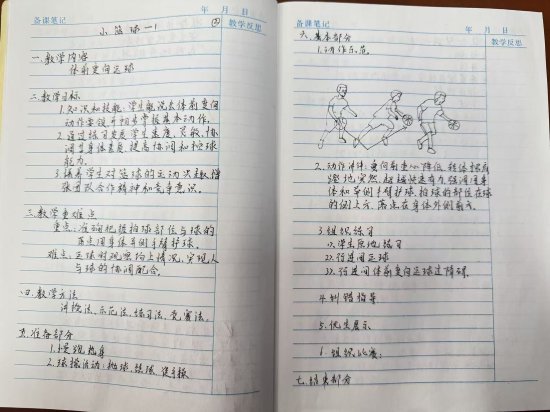 备课笔记
年 月 日
小篮球—1
教学反思
一、教学内容
体前变向运球
二、教学目标
1.知识和技能：学生能说出体前变向
动作要领并初步掌握基本动作。
2.通过练习发展学生速度、灵敏、协
调等身体素质，提高协调和控球
能力。
3.培养学生对篮球的运动兴趣，增
强团队合作精神和竞争意识。
三、教学重难点
重点：准确把握拍球部位与球的
落点，用身体与侧手臂护球。
难点：运球时观察场上情况，实现人
与球的协调配合。
四、教学方法
讲授法、示范法、练习法、竞赛法。
五、准备部分
1.慢跑热身
2.球操活动：抛球、绕球
备课笔记
年 月 日
教学反思
六、基本部分
1.动作示范
2.动作要领：变向前重心降低，转体探肩
用身
体和异侧手臂护球，拍球的部位在球
的侧上方，落点在身体外侧前方。
3.组织练习
(1)学生原地练习
(2)行进间运球
(3)行进间体前变向运球过障碍
4.纠错指导
5.优生展示
6.组织比赛：
七、结束部分